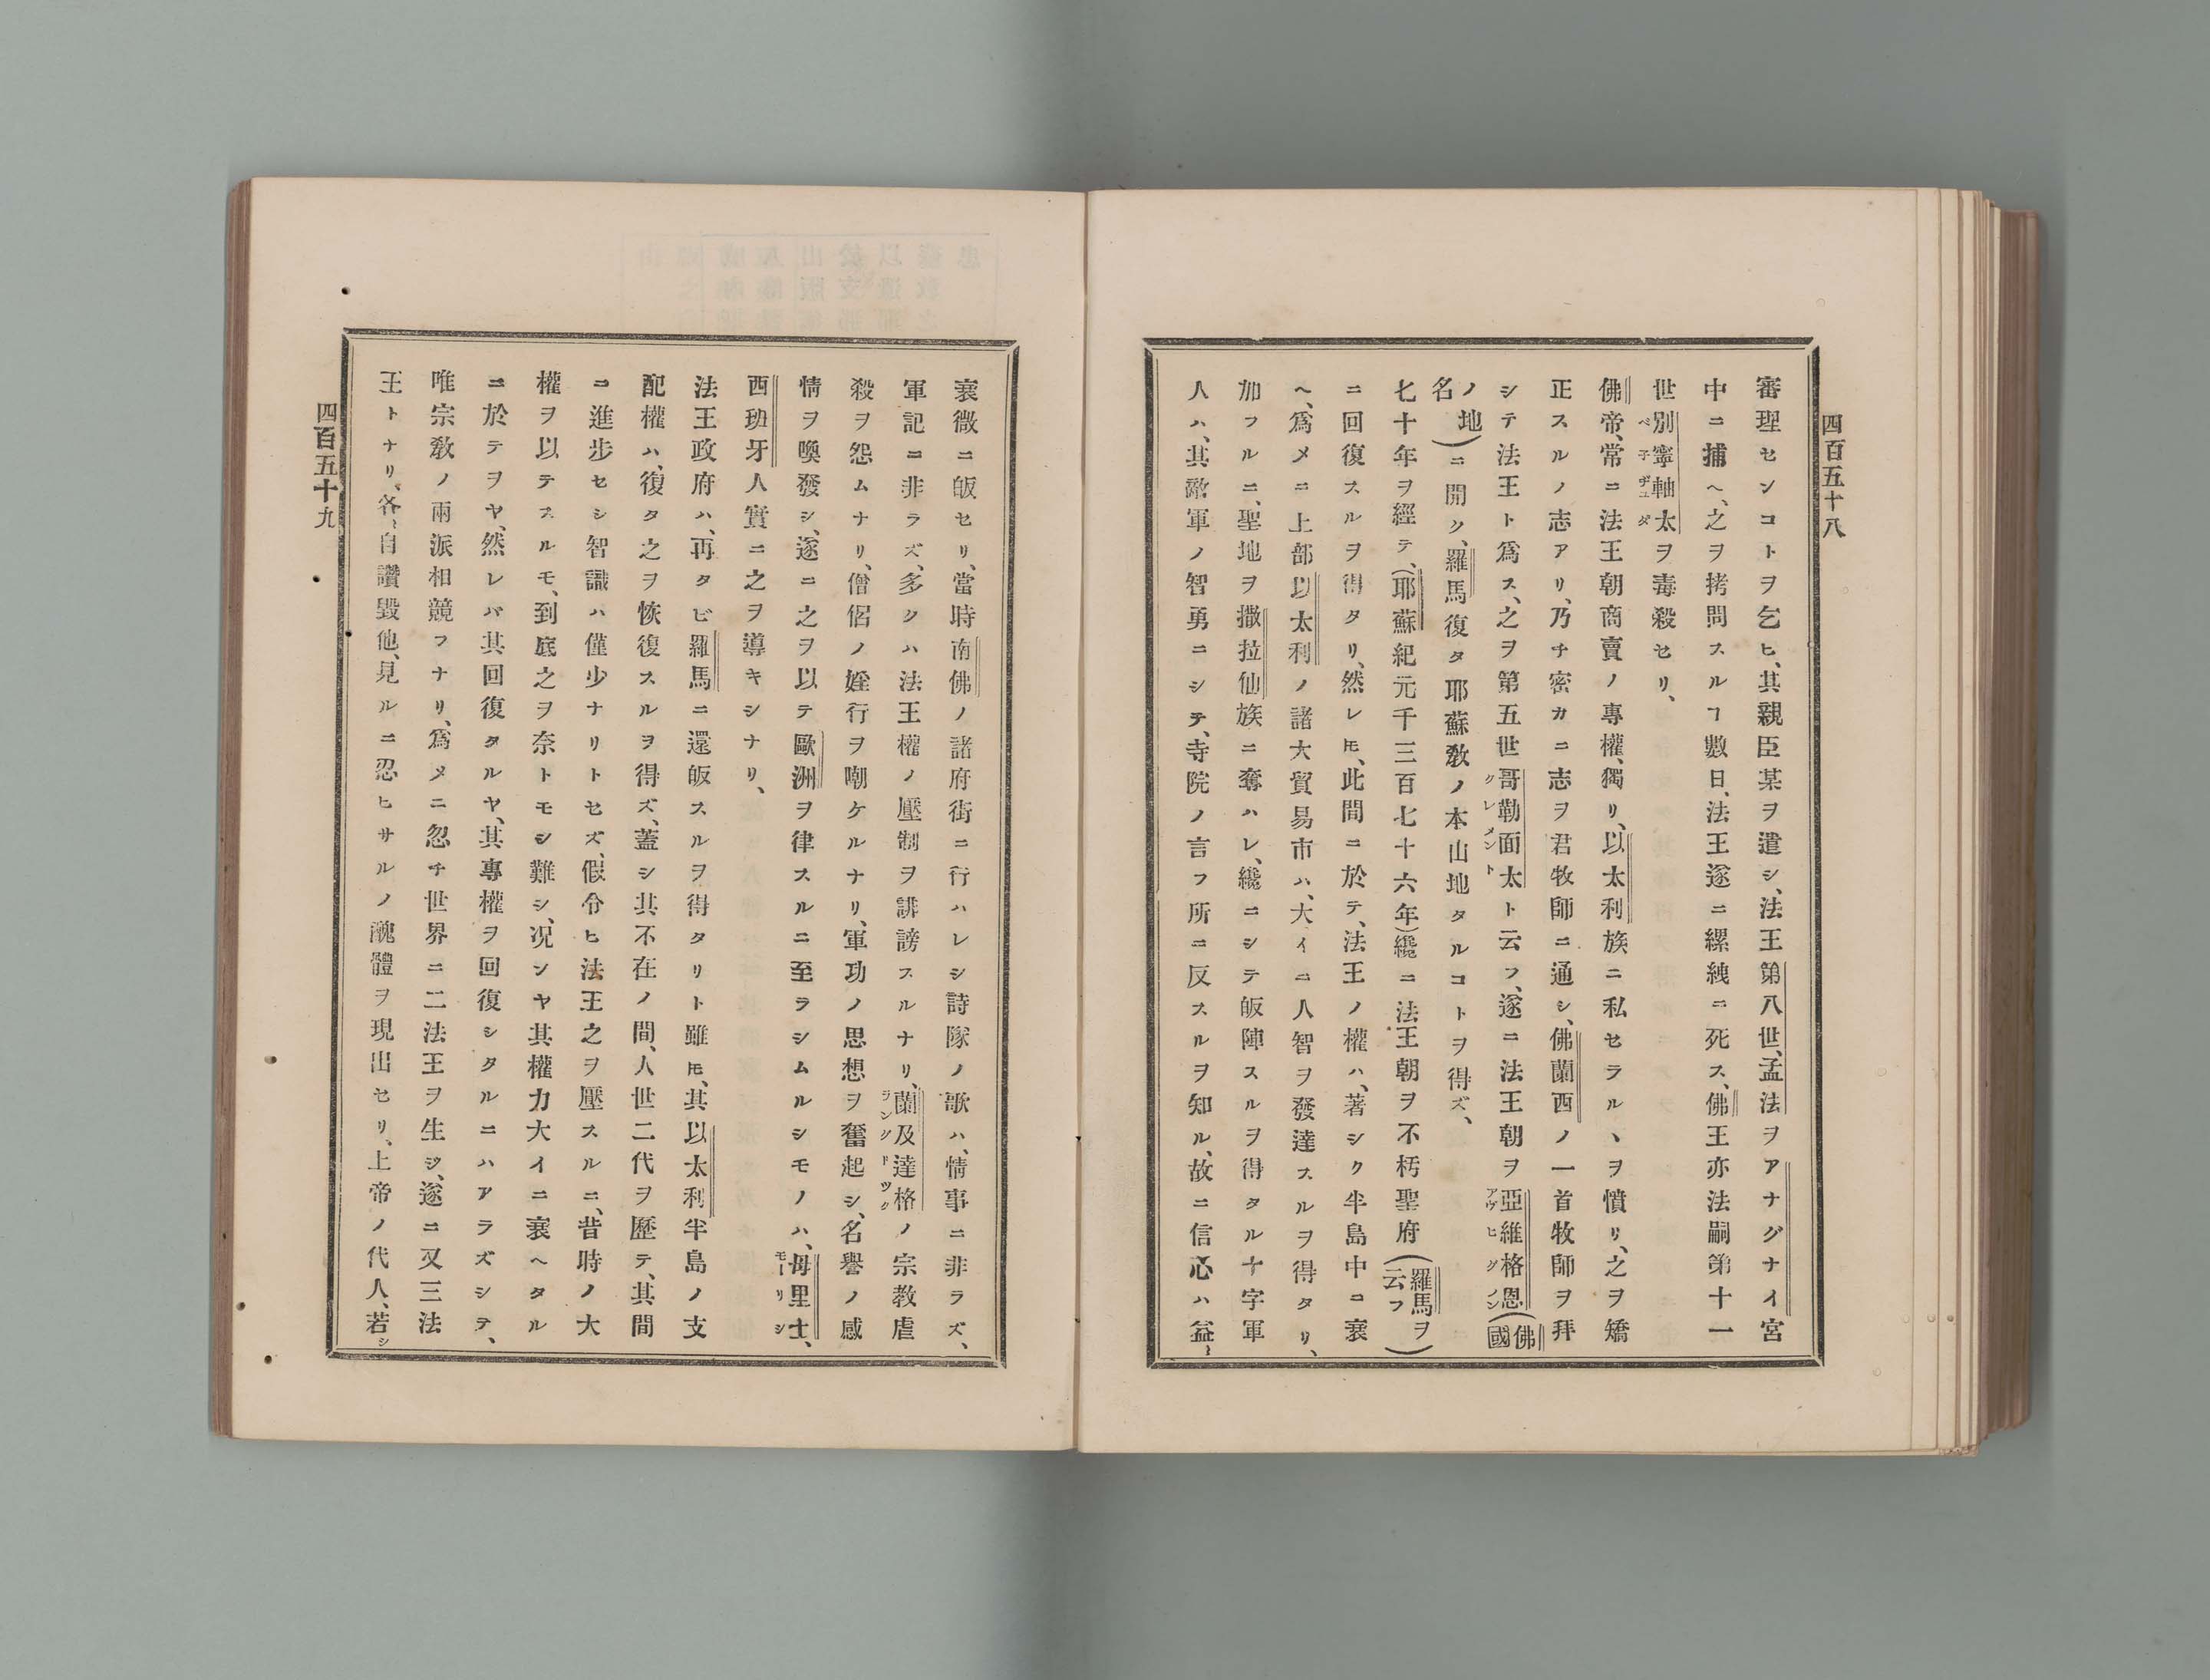 四百五十八
審理センコトヲ乞ヒ、其親臣某ヲ遣シ、法王第八世、孟法ヲアナグナイ宮
中ニ捕ヘ、之ヲ拷問スルヿ數日、法王遂ニ縲絏ニ死ス、佛王亦法嗣第十一
世別寧軸太ヲ毒殺セリ、
佛帝、常ニ法王朝商賣ノ專權、獨リ、以太利族ニ私セラルヽヲ憤リ、之ヲ矯
正スルノ志アリ、乃チ密カニ志ヲ君牧師ニ通シ、佛蘭西ノ一首牧師ヲ拜
シテ法王ト爲ス、之ヲ第五世哥勒面太ト云フ、遂ニ法王朝ヲ亞維格恩(佛國
ノ地名)ニ開ク、羅馬復タ耶蘇敎ノ本山地タルコトヲ得ズ、
七十年ヲ經テ、(耶蘇紀元千三百七十六年)纔ニ法王朝ヲ不朽聖府(羅馬ヲ云フ)
ニ回復スルヲ得タリ、然レ𪜈、此間ニ於テ、法王ノ權ハ、著シク半島中ニ衰
ヘ、爲メニ上部以太利ノ諸大貿易市ハ、大イニ人智ヲ發達スルヲ得タリ、
加フルニ、聖地ヲ撒拉仙族ニ奪ハレ、纔ニシテ皈陣スルヲ得タル十字軍
人ハ、其敵軍ノ智勇ニシテ、寺院ノ言フ所ニ反スルヲ知ル、故ニ信心ハ益〻
衰微ニ皈セリ、當時南佛ノ諸府街ニ行ハレシ詩隊ノ歌ハ、情事ニ非ラズ、
軍記ニ非ラズ、多クハ法王權ノ壓制ヲ誹謗スルナリ、蘭及達格ノ宗敎虐
殺ヲ怨ムナリ、僧侶ノ婬行ヲ嘲ケルナリ、軍功ノ思想ヲ奮起シ、名譽ノ感
情ヲ喚發シ、遂ニ之ヲ以テ歐洲ヲ律スルニ至ラシムルシモノハ、母里士、
西班牙人實ニ之ヲ導キシナリ、
法王政府ハ、再タビ羅馬ニ還皈スルヲ得タリト雖𪜈、其以太利半島ノ支
配權ハ、復タ之ヲ恢復スルヲ得ズ、蓋シ其不在ノ間、人世二代ヲ歷テ、其間
ニ進步セシ智識ハ僅少ナリトセズ、假令ヒ法王之ヲ壓スルニ、昔時ノ大
權ヲ以テスルモ、到底之ヲ奈トモシ難シ、况ンヤ其權力大イニ衰ヘタル
ニ於テヲヤ、然レバ其回復タルヤ、其專權ヲ回復シタルニハアラズシテ、
唯宗敎ノ兩派相競フナリ、爲メニ忽チ世界ニ二法王ヲ生ジ、遂ニ又三法
王トナリ、各〻自讚毀他、見ルニ忍ヒサルノ醜體ヲ現出セリ、上帝ノ代人、若シ
四百五十九